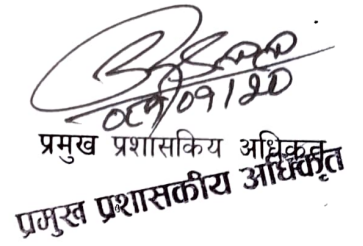 09/20
प्रमुख प्रशासकिय अधिकृत
प्रमुख प्रशासकीय अधिकृत